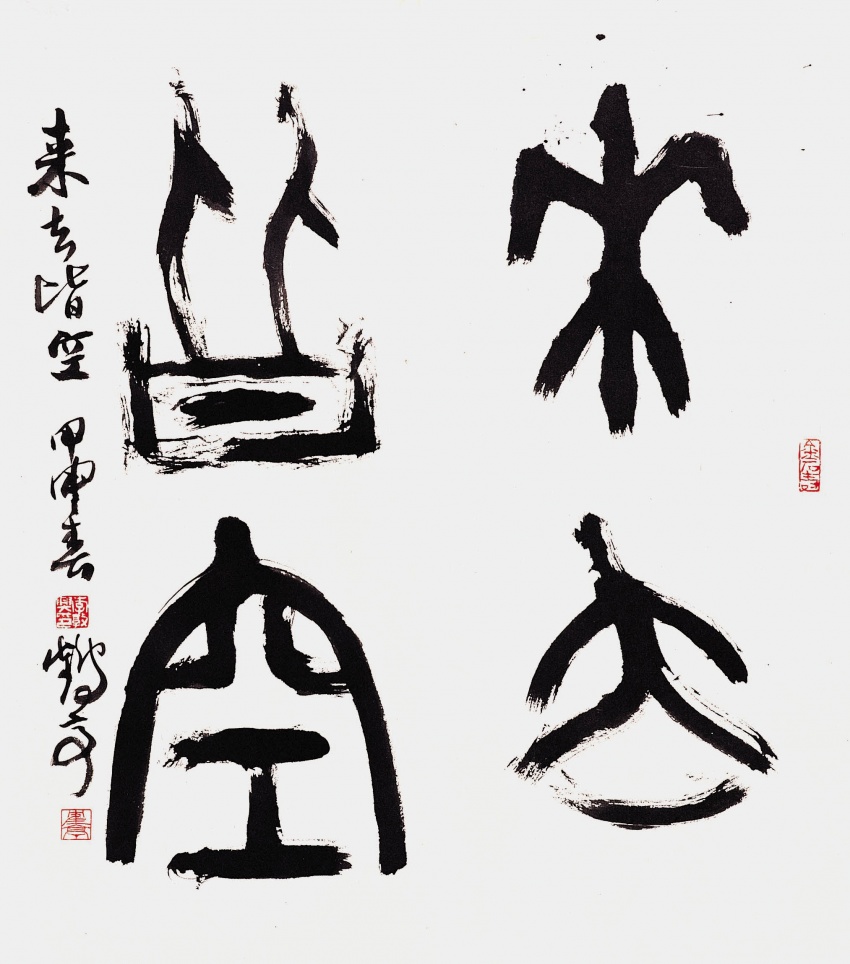 来去
皆空
来去皆空 甲申春 鹤亭